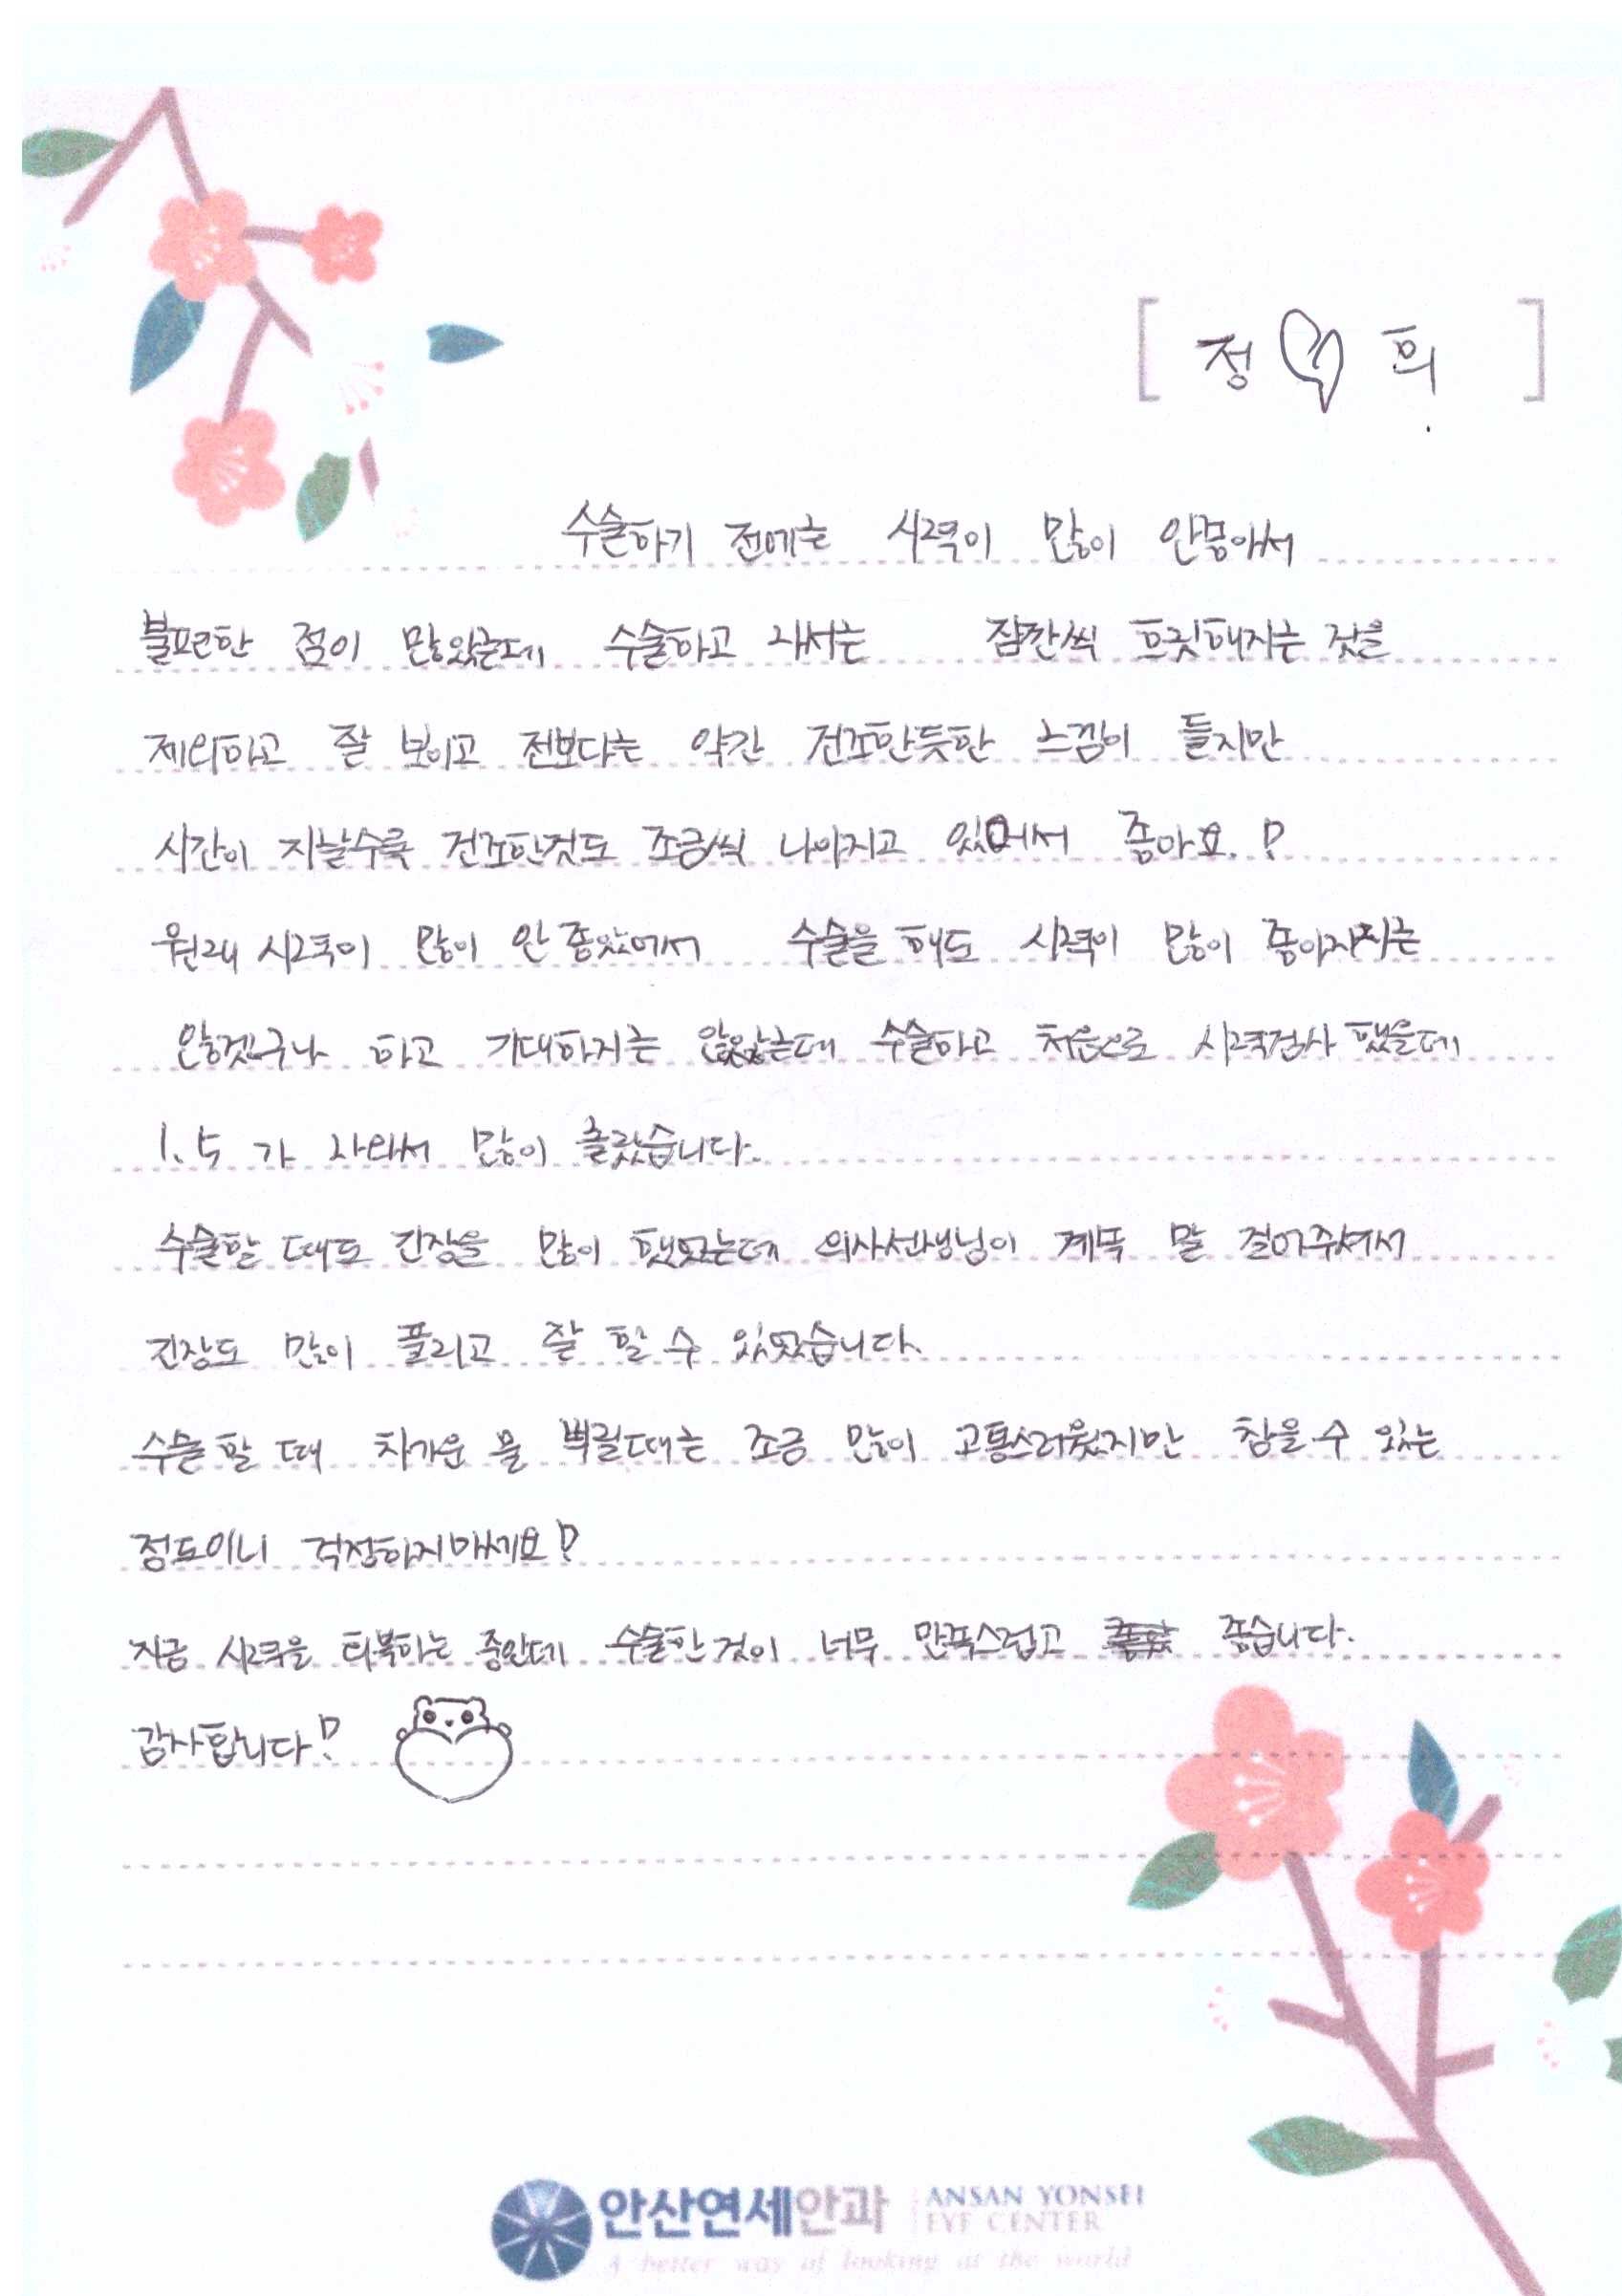 [ 정 희 ]
수술하기 전에는 시력이 많이 안좋아서
불편한 점이 많았는데 수술하고 나서는 잠깐씩 흐릿해지는 것을
제외하고 잘 보이고 전보다는 약간 건조한듯한 느낌이 들지만
시간이 지날수록 건조한것도 조금씩 나아지고 있어서 좋아요!
원래 시력이 많이 안 좋았어서 수술을 해도 시력이 많이 좋아지지는
않겠구나 하고 기대하지는 않았는데 수술하고 처음으로 시력검사 했을때
1.5 가 나와서 많이 놀랐습니다.
수술할 때도 긴장을 많이 했었는데 의사선생님이 계속 말 걸어주셔서
긴장도 많이 풀리고 잘 할 수 있었습니다.
수술 할 때 차가운 물 뿌릴때는 조금 많이 고통스러웠지만 참을 수 있는
정도이니 걱정하지마세요!
지금 시력을 회복하는 중인데 수술한 것이 너무 만족스럽고 좋습니다.
감사합니다!
안산연세안과 ANSAN YONSEI
EYE CENTER
A better way of looking at the world